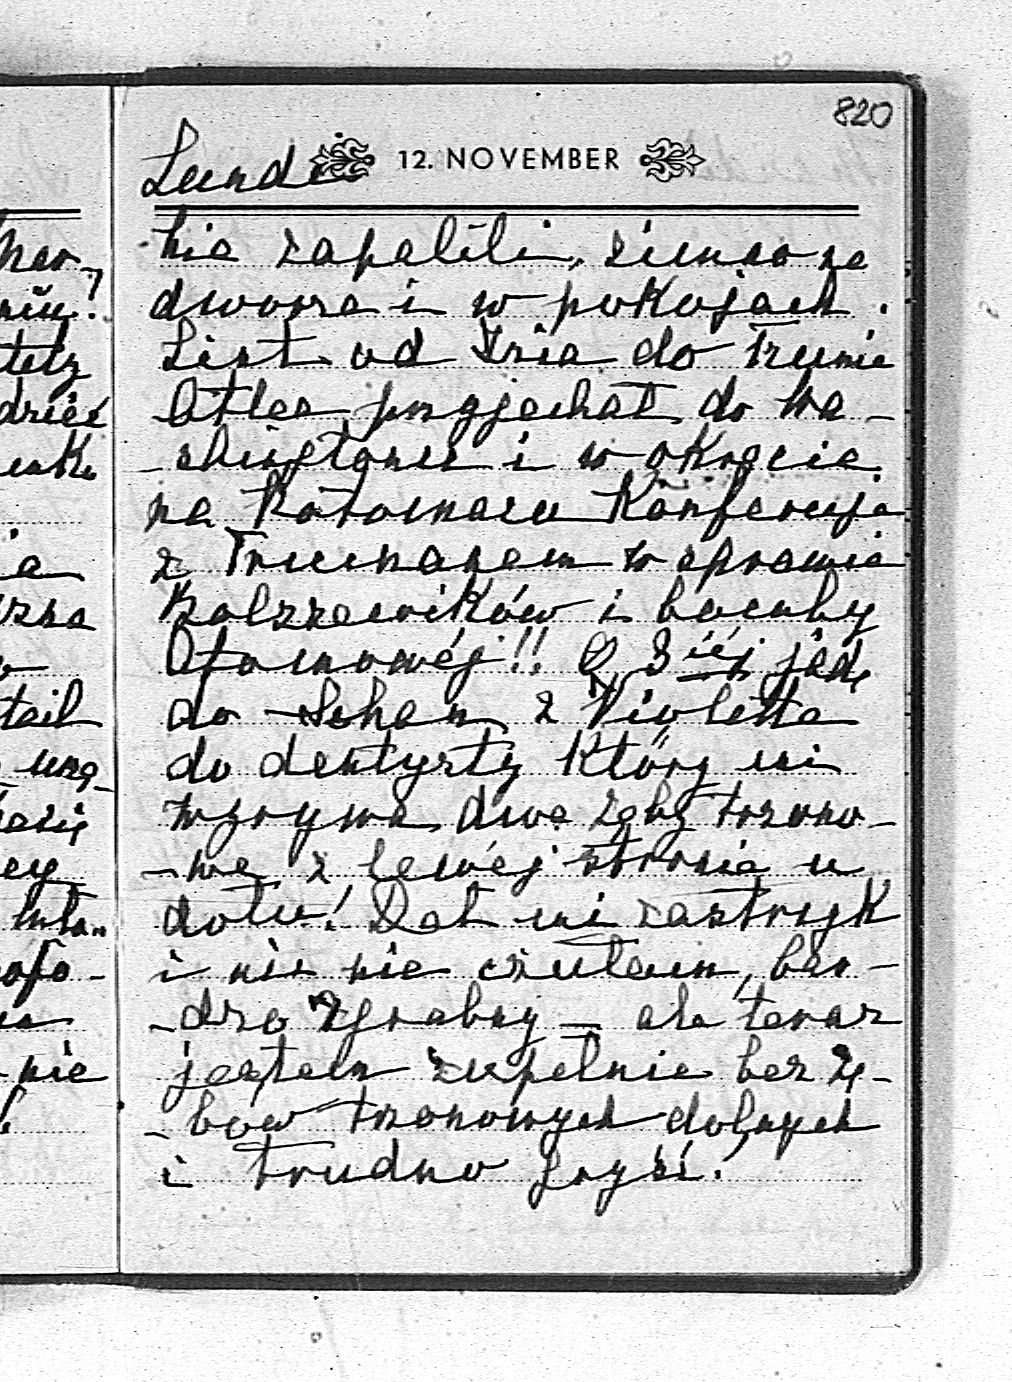 820
Lundi
12. NOVEMBER
nie zapalili, zimno na
dworze i w pokojach.
List od Iria do
Atlee przyjechał do Wa-
-shingtonu i w okręcie
na Potomacu Konferuje
z Trumanem w sprawie
Bolszewików i bomby
Atomowéj!! O 3iéj jadę
do z Violettą
do dentysty który mi
wyrywa dwa zęby trzono-
-we z lewéj stronie u
dołu! Dał mi zastrzyk
i nic nie czułam, bar-
-dzo zgrabny – ale teraz
jestem zupełnie bez zę-
-bów trzonowych dolnych
i trudno gryść!